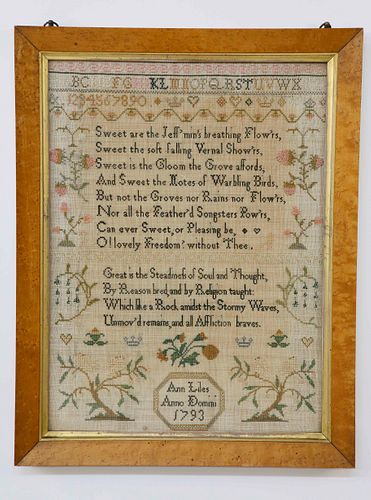 BC FG KL M OPQRSTUVWX
1234567890
Sweet are the Jeff'min's breathing Flow'rs,
Sweet the soft falling Vernal Show'rs,
Sweet is the Gloom the Grove affords,
And Sweet the Notes of Warbling Birds,
But not the Groves nor Rains nor Flow'rs,
Nor all the Feather'd Songsters Pow'rs,
Can ever Sweet, or Pleasing be,
O! lovely Freedom? without Thee.
Great is the Steadmess of Soul and Thought,
By Reason bred, and by Religion taught:
Which like a Rock amidst the Stormy Waves,
Unmov'd remains, and all Affliction braves.
Ann Liles
Anno Domini
1793